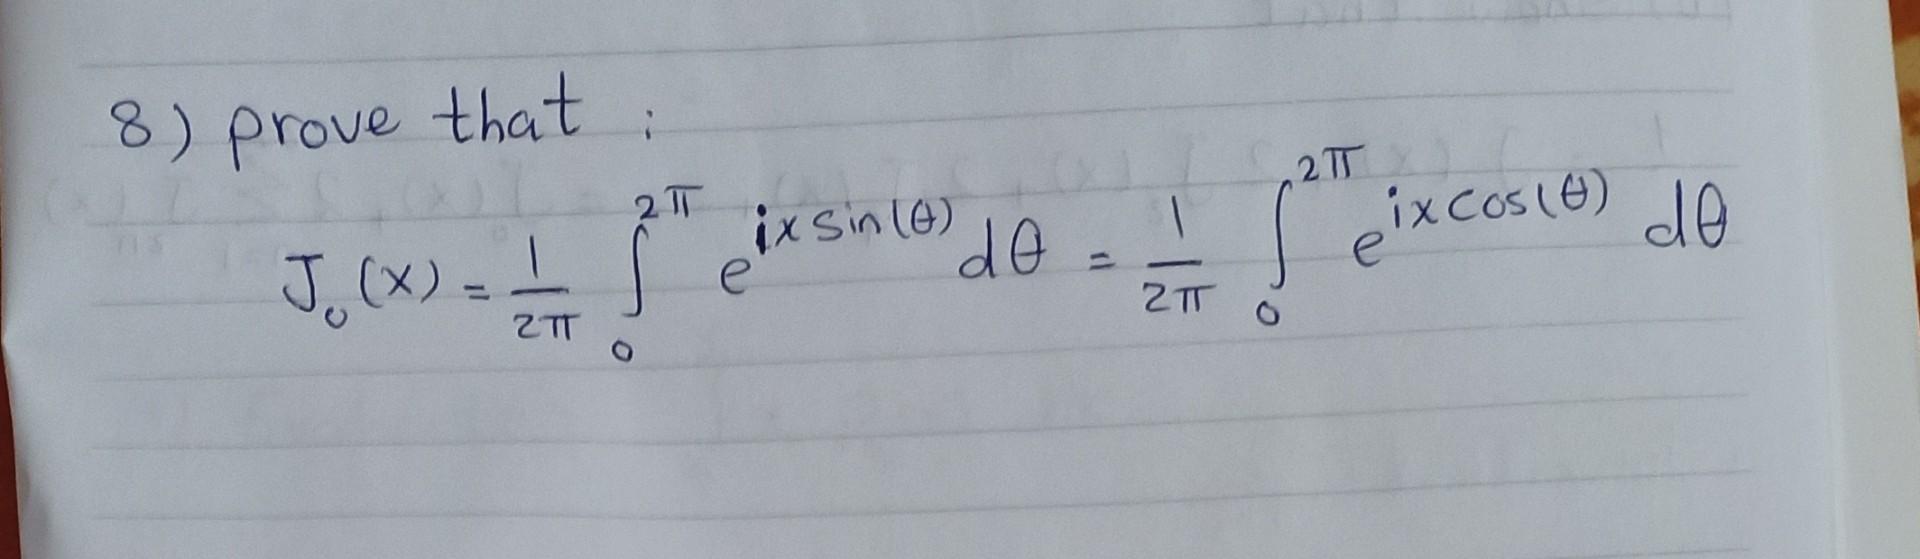 8) prove that :
J₀(x) = 1/2π ∫₀^2π e^ix sin(θ) dθ = 1/2π ∫₀^2π e^ix cos(θ) dθ